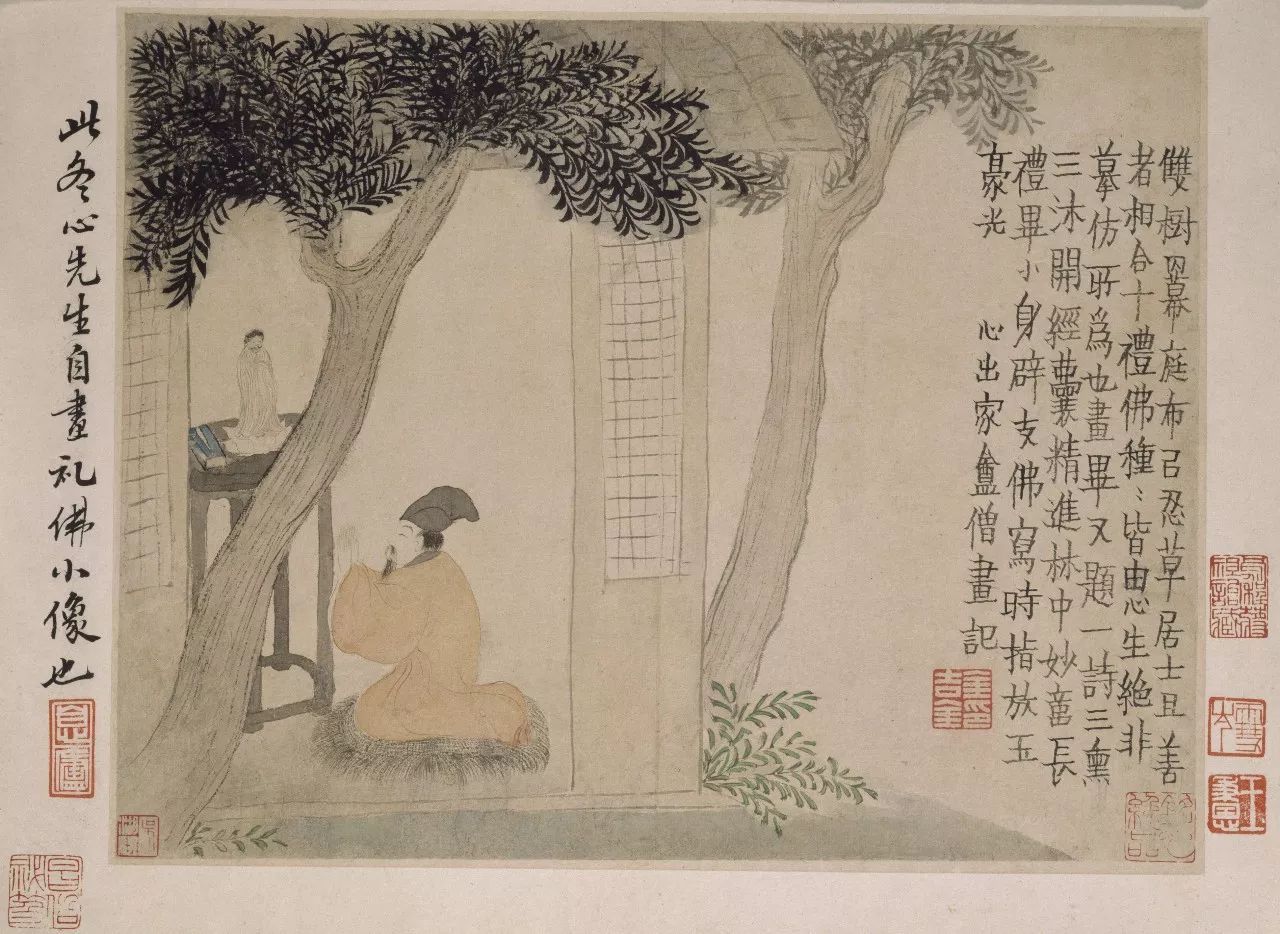 雙樹羃庭布㠯忍草居士且善
者相合十禮佛種〻皆由心生絕非
摹仿所爲也畫畢又題一詩三熏
三沐開經囊精進林中妙長
禮畢小身辟支佛寫時指放五
豪光 心出家盦僧畫記
金吉金印
此冬心先生自畫礼佛小像也